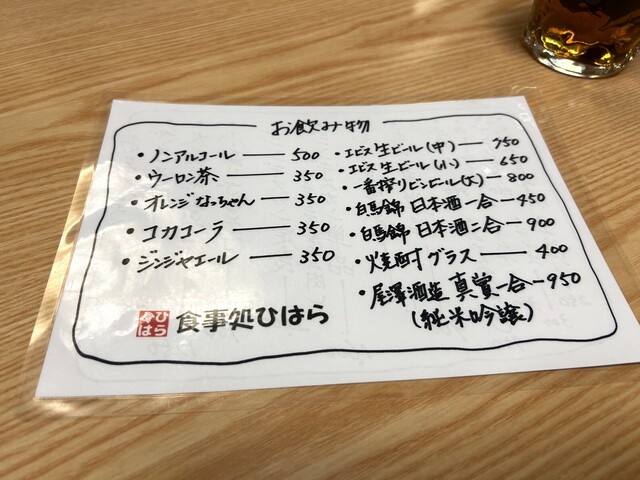 お飲み物
・ノンアルコール — 500
・ウーロン茶 — 350
・オレンジなっちゃん — 350
・コカコーラ — 350
・ジンジャエール — 350
・エビス生ビール(中) — 750
・エビス生ビール(小) — 650
・一番搾りビンビール(大) — 800
・白馬錦 日本酒一合 — 450
・白馬錦 日本酒二合 — 900
・焼酎グラス — 400
・尾澤酒造 真賞一合 — 950
(純米吟醸)
ひはら 食事処ひはら